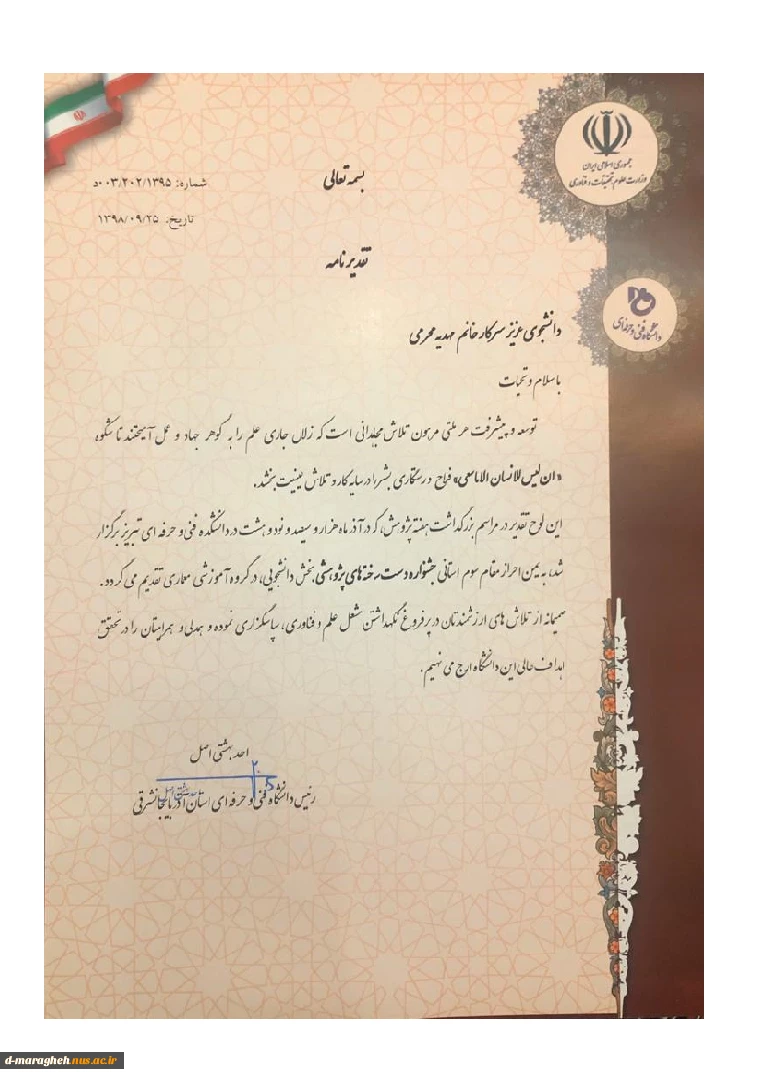 جمهوری اسلامی ایران
وزارت علوم، تحقیقات و فناوری
بسمه تعالی
شماره: ۵۰۰۳/۲۰۲/۱۳۹۵
تاریخ: ۱۳۹۸/۰۹/۲۵
تقدیرنامه
دانشگاه فنی و حرفه‌ای
دانشجوی عزیز سرکار خانم مهدیه محرمی
باسلام و تحیات
توسعه و پیشرفت هر ملتی مرهون تلاش مجاهدانی است که زلال جاری علم را به گوهر جهاد و عمل آمیختند تا شکوه
«ان لیس للانسان الا ماسعی» فراخ رستگاری بشر را در سایه کار و تلاش عینیت بخشد.
این لوح تقدیر در مراسم بزرگداشت هفته پژوهش، که در آذر ماه هزار و سیصد و نود و هشت در دانشکده فنی و حرفه ای تبریز برگزار
شد، به یمن احراز مقام سوم استانی جشنواره دست ساخته های پژوهشی بخش دانشجویی، در گروه آموزشی معماری تقدیم می گردد.
صمیمانه از تلاش های ارزشمندتان در پر فروغ نگهداشتن مشعل علم و فناوری، سپاسگزاری نموده و همدلی و همراهیتان را در تحقق
اهداف عالی این دانشگاه ارج می نهیم.
احد بهشتی اصل
رئیس دانشگاه فنی و حرفه ای استان آذربایجانشرقی
d-maragheh.nus.ac.ir